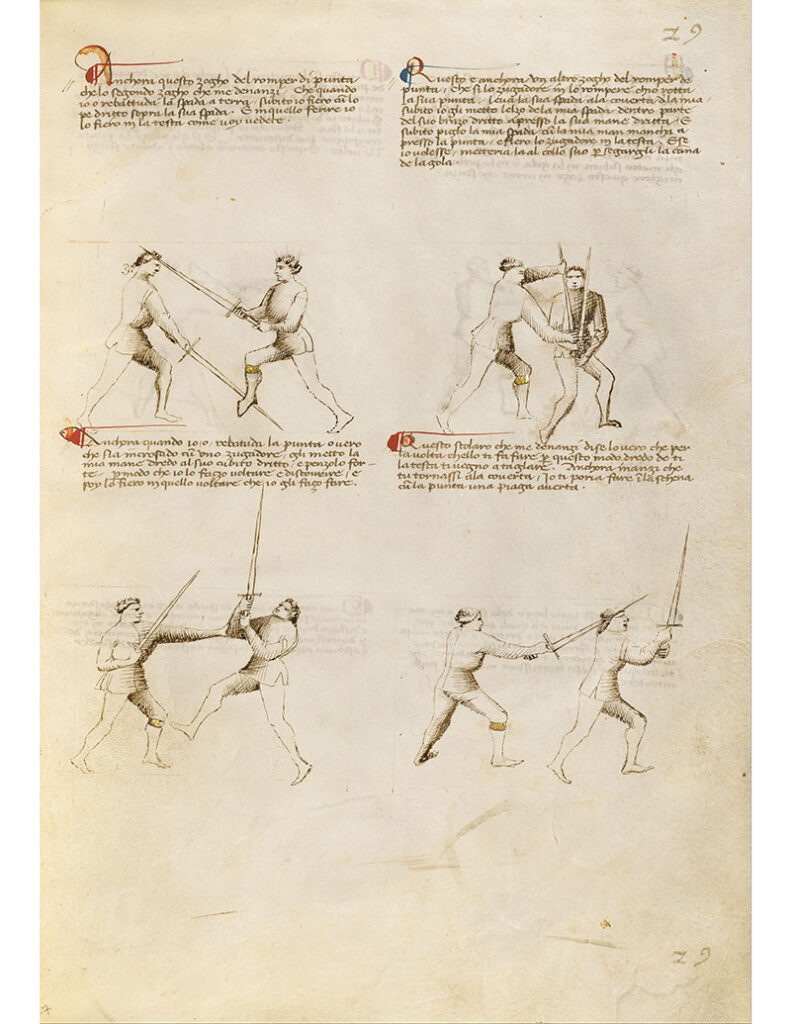 29
Anchora questo zogho del romper di punta
che lo segondo zogho che me denanzi. Che quando
io o rebattuda la spada a terra, subito io fiero cu lo
pe dritto sopra la sua spada. E in quello ferire io
lo fiero in la testa come voy vedete.
Questo e anchora un altro zogho del romper de
punta, che si lo zugadore in lo rompere ch'io o rotta
la sua punta, leva la sua spada ala coverta dla mia
subito io gli metto l'elzo della mia spada dentro parte
del suo brazo dritto apresso la sua mane dritta, E
subito piglo la mia spada cu la mia man mancha a
presso la punta, e fiero lo zugadore in la testa. E se
io volesse, metteria la al collo suo p segargli la cana
de la gola.
Anchora quando io o, rebatuda la punta overo
che sia incrosado cu uno zugadore, gli metto la
mia mane dredo al suo cubito dritto, e penzolo for-
te p modo che io lo fazo voltare e discovrire, e
poy lo fiero in quello voltare che io gli fazo fare.
Questo scolaro che me denanzi dise lo vero che per
la volta ch'ello ti fa fare p questo modo dredo de ti
la testa ti vegno a taglare. Anchora inanzi che
tu tornassi ala coverta, Io ti poria fare i la schena
cu la punta una piaga averta.
29